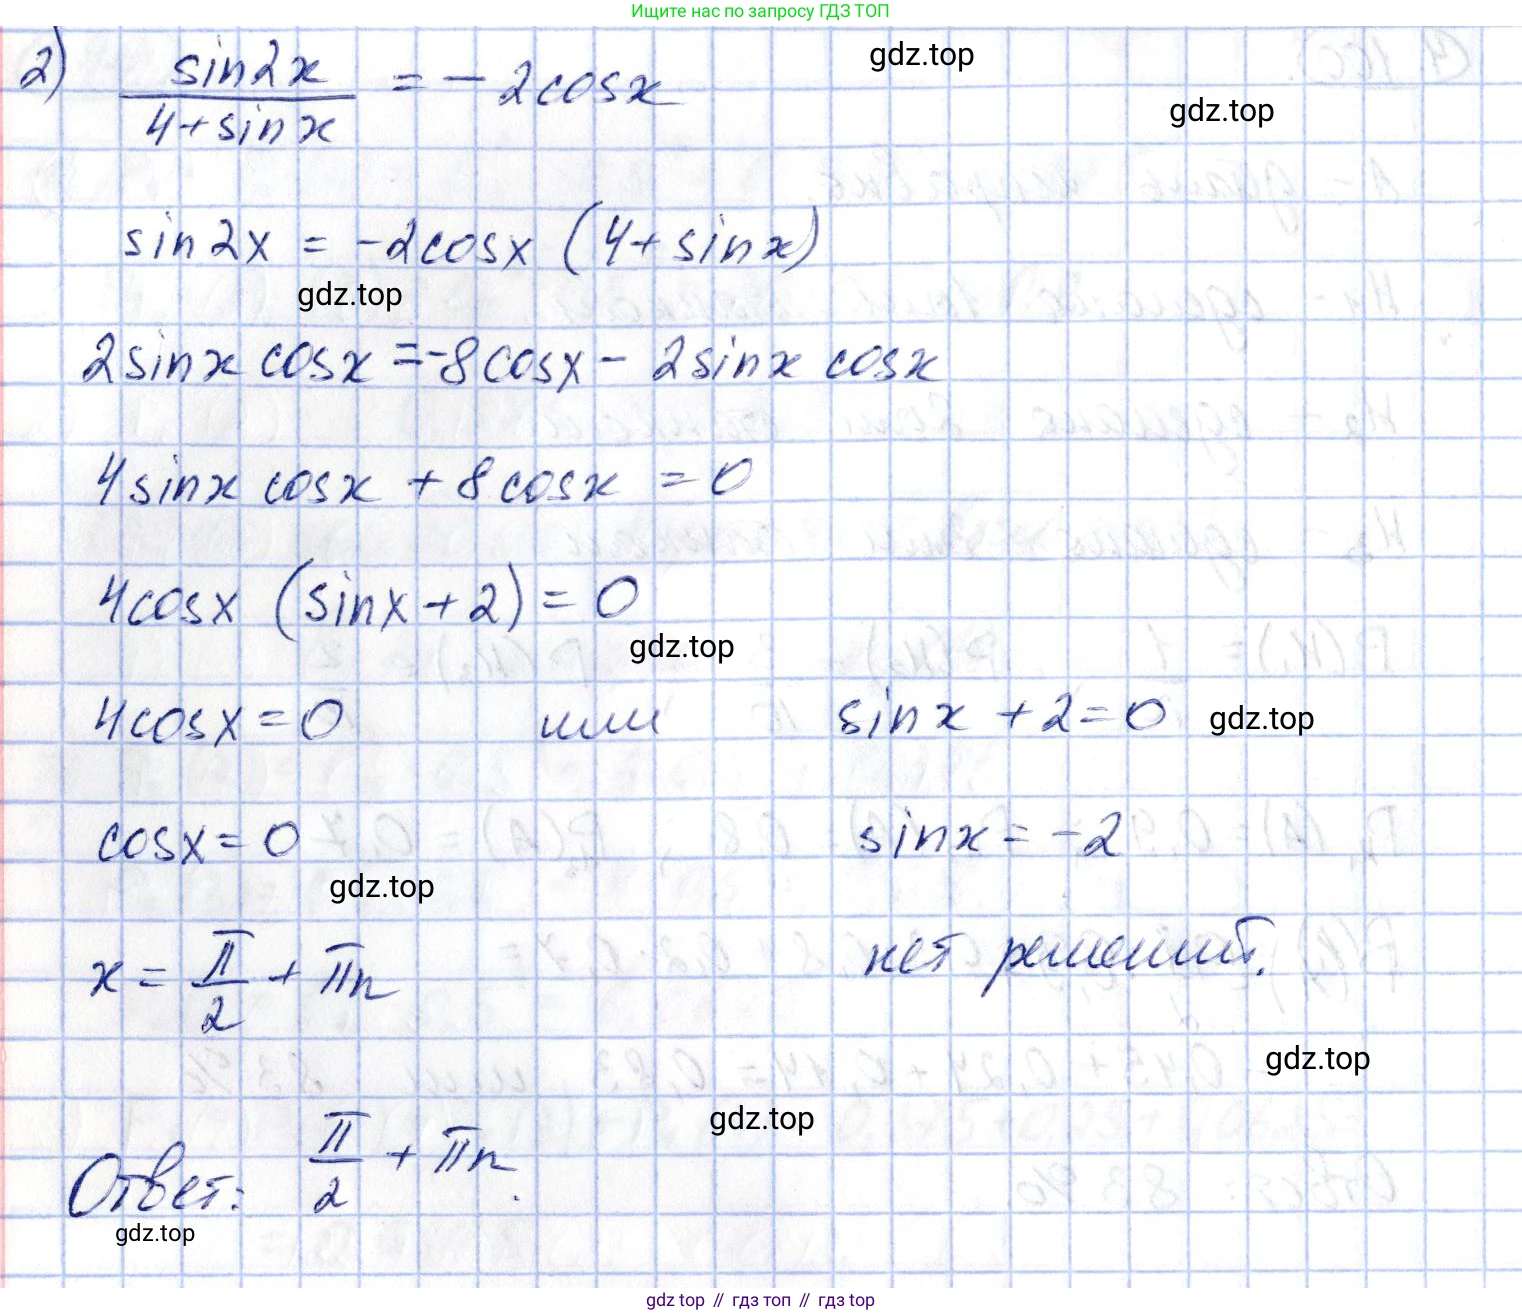 Ищите нас по запросу ГДЗ ТОП
2) sin2x / 4+sinx = -2cosx
gdz.top
gdz.top
sin2x = -2cosx (4+sinx)
gdz.top
2sinx cosx = -8cosx - 2sinx cosx
4sinx cosx + 8cosx = 0
4cosx (sinx+2) = 0
gdz.top
4cosx = 0 или sinx + 2 = 0 gdz.top
cosx = 0 sinx = -2
gdz.top
x = π/2 + πn нет решений.
gdz.top
gdz.top
Ответ: π/2 + πn.
gdz.top
gdz top // гдз топ // гдз top